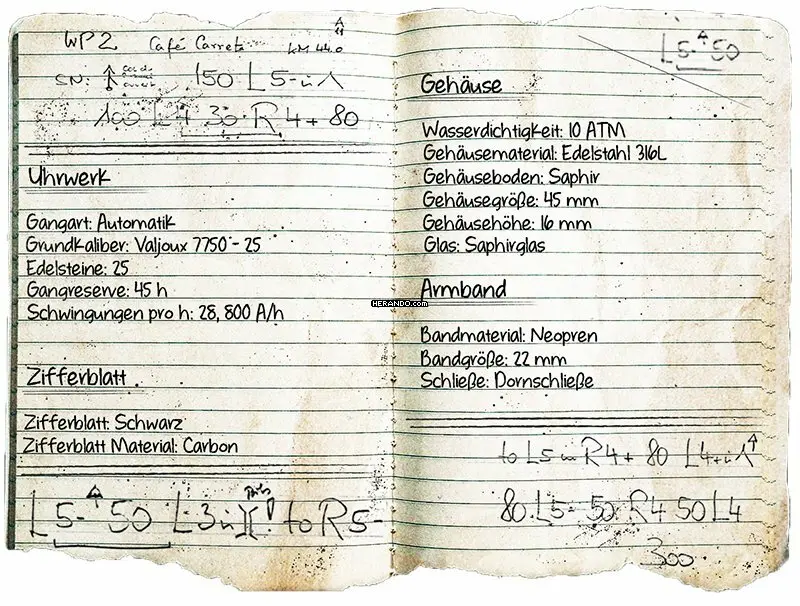 WP2 Café Carreta KM 44.0
SN: 150 L5-
100 L4 30 R4+ 80
Uhrwerk
Gangart: Automatik
Grundkaliber: Valjoux 7750 - 25
Edelsteine: 25
Gangreserve: 45 h
Schwingungen pro h: 28, 800 A/h
Zifferblatt
Zifferblatt: Schwarz
Zifferblatt Material: Carbon
L5- 50 L3 to R5-
L5- 50
Gehäuse
Wasserdichtigkeit: 10 ATM
Gehäusematerial: Edelstahl 316L
Gehäuseboden: Saphir
Gehäusegröße: 45 mm
Gehäusehöhe: 16 mm
Glas: Saphirglas
HERANDO.com
Armband
Bandmaterial: Neopren
Bandgröße: 22 mm
Schließe: Dornschließe
to L5 R4+ 80 L4+
80 L5- 50 R4 50 L4
300